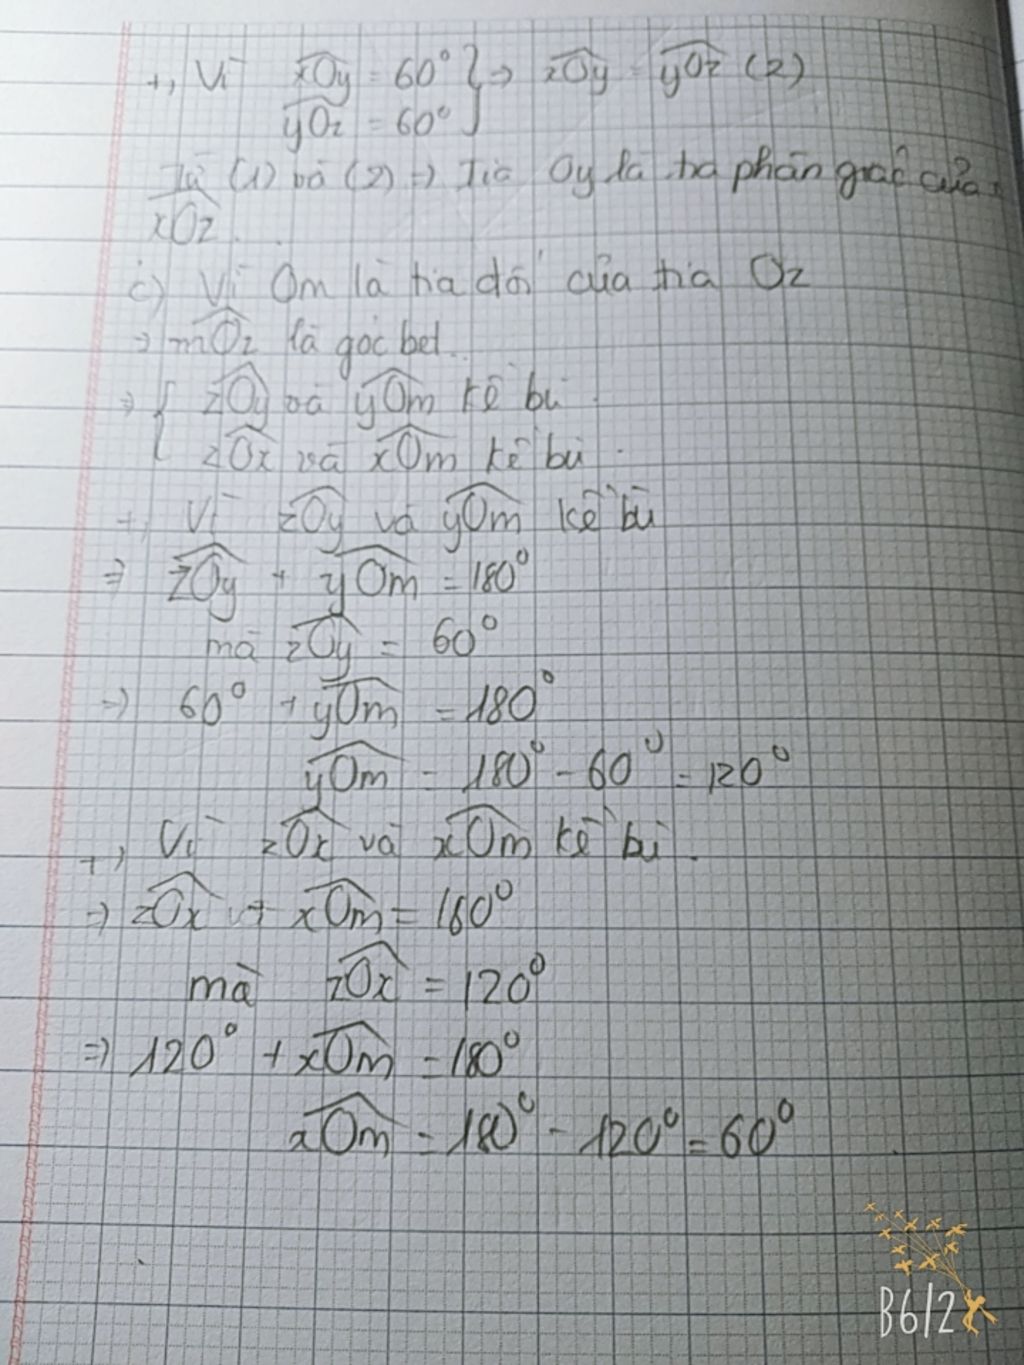 +, Vì xOy = 60° } => xOy = yOz (2)
yOz = 60°
Từ (1) và (2) => Tia Oy là tia phân giác của
xOz.
c) Vì Om là tia đối của tia Oz
=> mOz là góc bẹt.
=> { zOy và yOm kề bù
zOx và xOm kề bù.
+, Vì zOy và yOm kề bù
=> zOy + yOm = 180°
mà zOy = 60°
=> 60° + yOm = 180°
yOm = 180° - 60° = 120°
+, Vì zOx và xOm kề bù.
=> zOx + xOm = 180°
mà zOx = 120°
=> 120° + xOm = 180°
xOm = 180° - 120° = 60°
B612